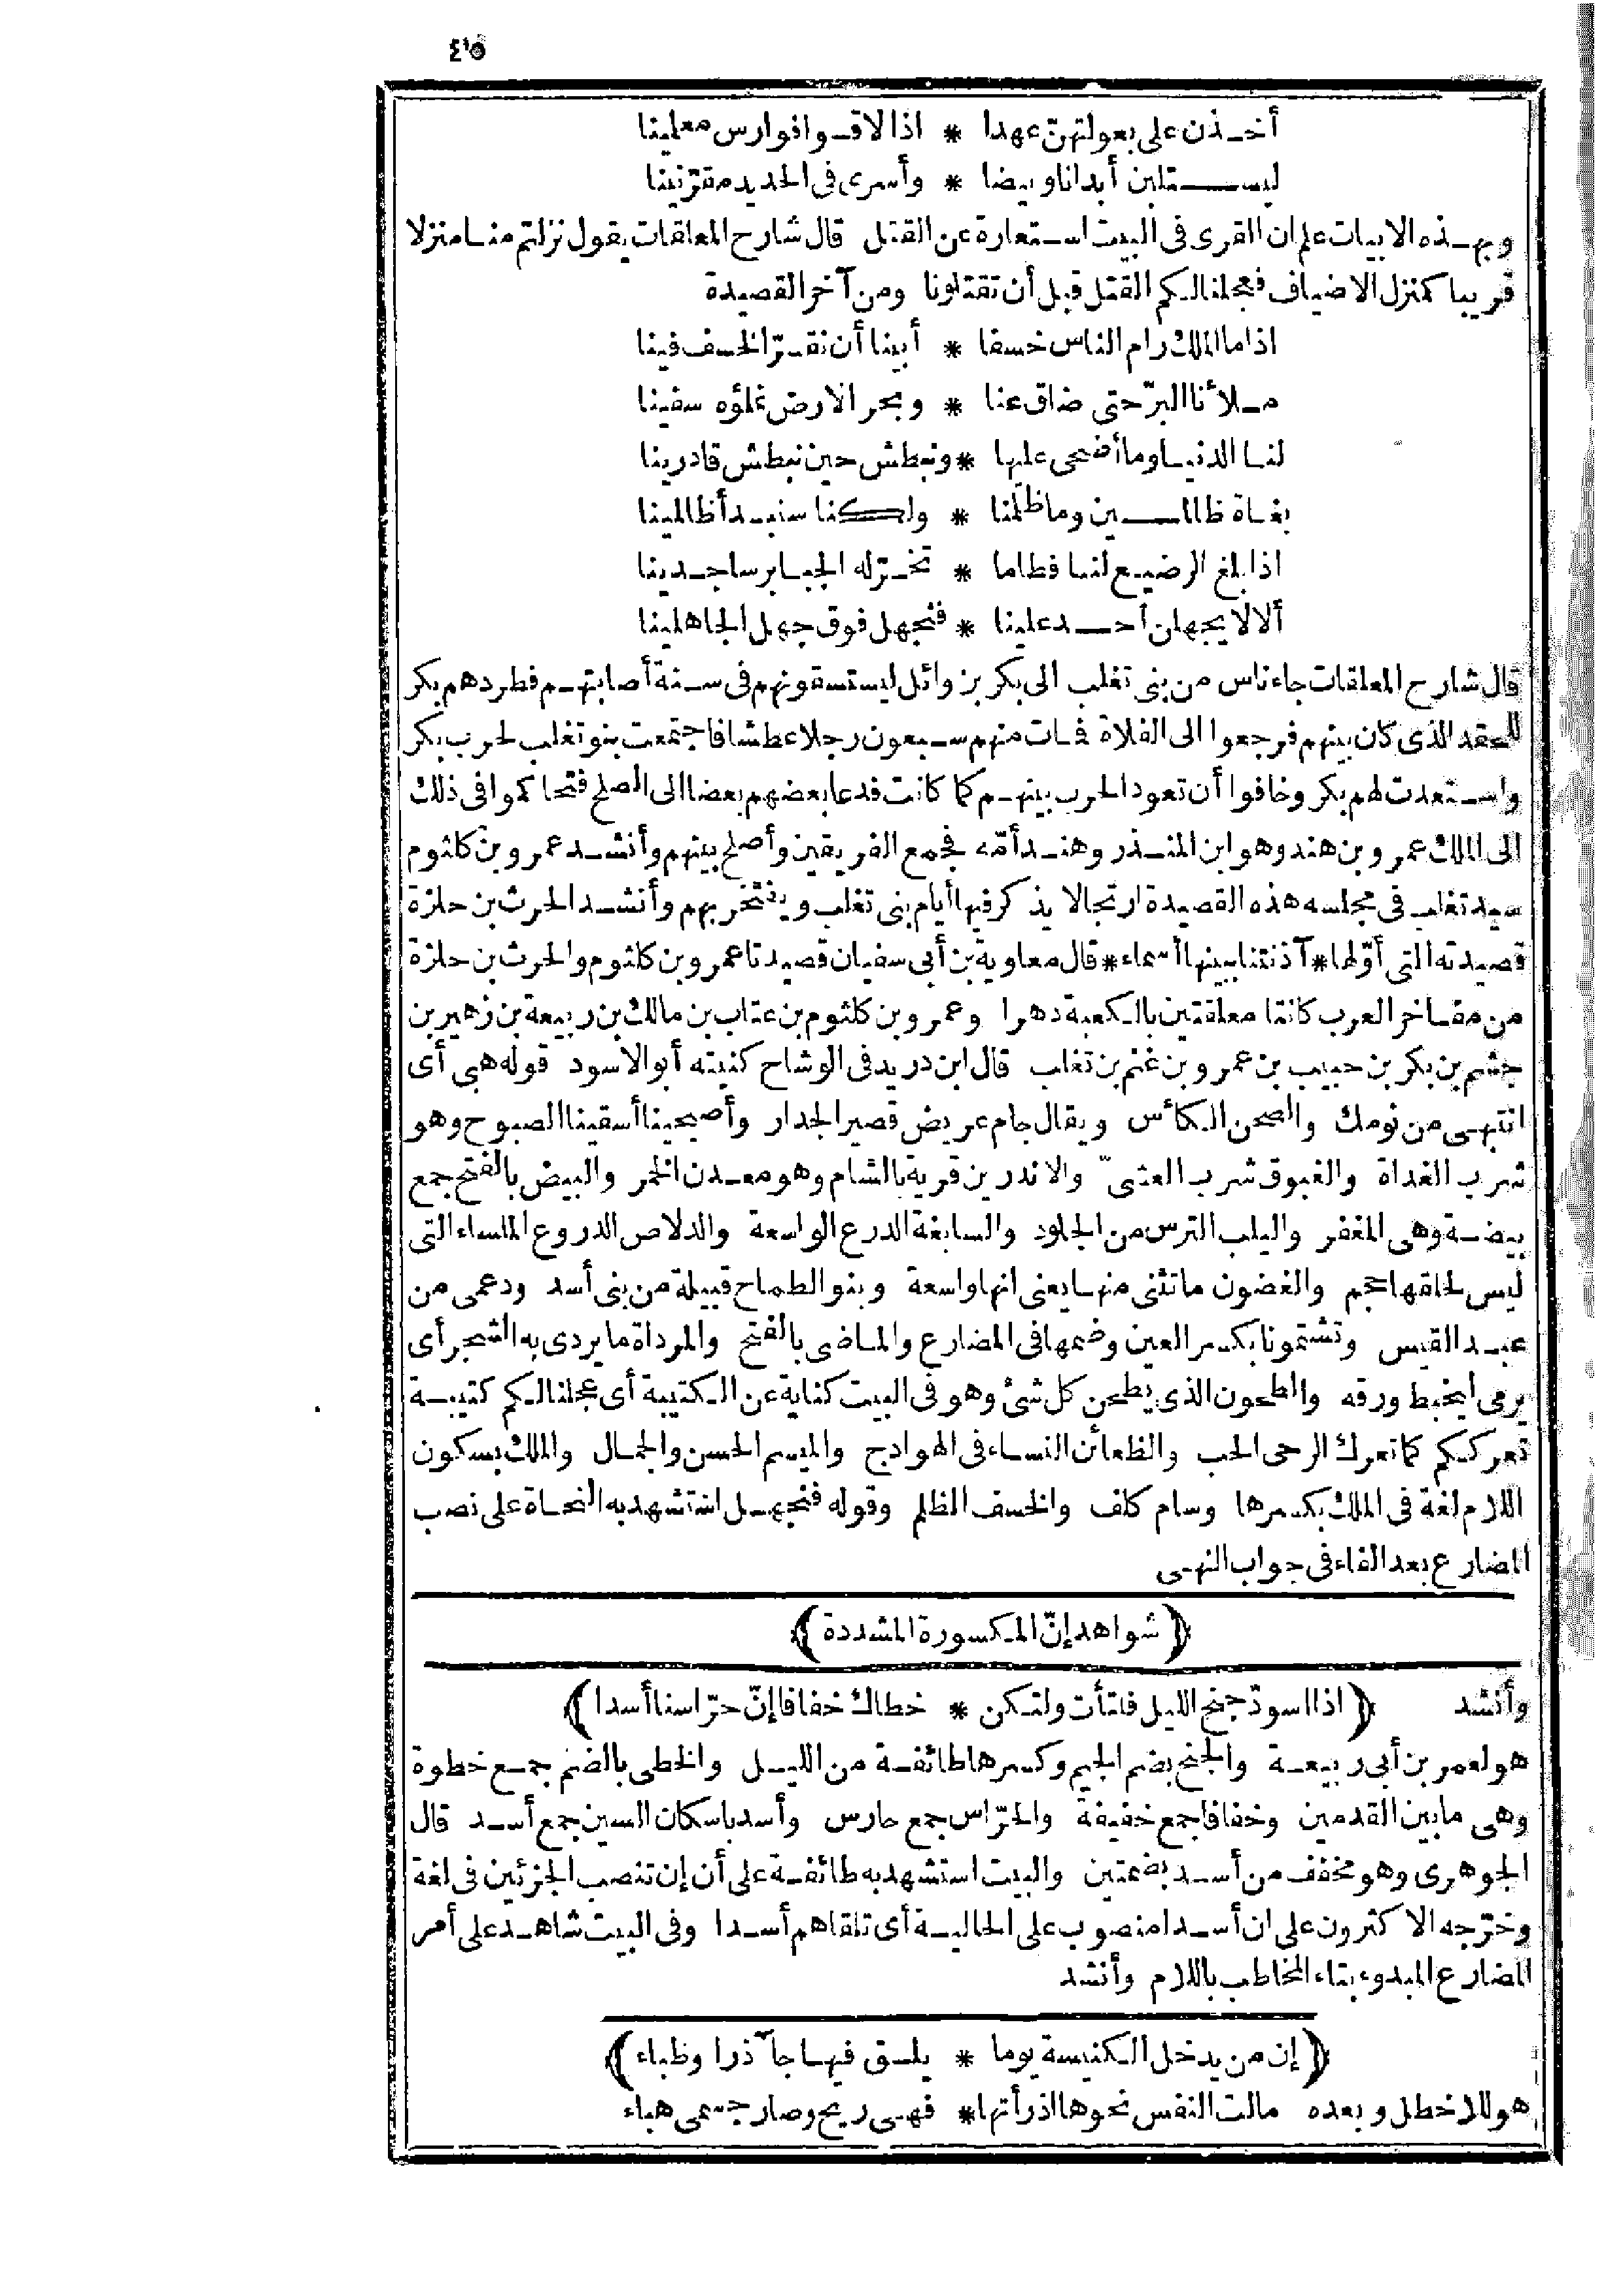 ٤٥
أخذن على بعولتهنّ عهدا * اذا لاقوا فوارس معلمينا
ليستلبن أبدانا وبيضا * وأسرى فى الحديد مقرّنينا
وبهذه الابيات علم ان القرى فى البيت استعارة عن القتل قال شارح المعلقات يقول نزلتم منا منزلا
قريبا كمنزل الاضياف فعجلنا لكم القتل قبل أن تقتلونا ومن آخر القصيدة
اذا ما الملك رام الناس خسفا * أبينا أن نقرّ الخسف فينا
ملأنا البرّ حتى ضاق عنا * وبحر الارض نملؤه سفينا
لنا الدنيا وما أضحى عليها * ونبطش حين نبطش قادرينا
بغاة ظالمين وما ظلمنا * ولكنا سنبدأ ظالمينا
اذا بلغ الرضيع لنا فطاما * تخرّ له الجبابر ساجدينا
ألا لا يجهلن أحد علينا * فنجهل فوق جهل الجاهلينا
قال شارح المعلقات جاء ناس من بنى تغلب الى بكر بن وائل ليستسقونهم فى سنة أصابتهم فطردهم بكر
للحقد الذى كان بينهم فرجعوا الى الفلاة فمات منهم سبعون رجلا عطشا فاجتمعت بنو تغلب لحرب بكر
واستعدت لهم بكر وخافوا أن تعود الحرب بينهم كما كانت فدعا بعضهم بعضا الى الصلح فتحاكموا فى ذلك
الى الملك عمرو بن هند وهو ابن المنذر وهند أمّه فجمع الفريقين وأصلح بينهم وأنشد عمرو بن كلثوم
سيد تغلب فى مجلسه هذه القصيدة ارتجالا يذكر فيها أيام بنى تغلب ويفتخر بهم وأنشد الحرث بن حلزة
قصيدته التى أوّلها * آذنتنا ببينها أسماء * قال معاوية بن أبى سفيان قصيدتا عمرو بن كلثوم والحرث بن حلزة
من مفاخر العرب كانتا معلقتين بالكعبة دهرا وعمرو بن كلثوم بن عتاب بن مالك بن ربيعة بن زهير بن
جشم بن بكر بن حبيب بن عمرو بن غنم بن تغلب قال ابن دريد فى الوشاح كنيته أبو الاسود قوله هبى أى
انتبهى من نومك والصحن الكأس ويقال جام عريض قصير الجدار وأصبحينا أسقينا الصبوح وهو
شرب الغداة والغبوق شرب العشىّ والاندرين قرية بالشام وهو معدن الخمر والبيض بالفتح جمع
بيضة وهى المغفر واليلب الترس من الجلود والسابغة الدرع الواسعة والدلاص الدروع الملساء التى
ليس لحلقها حجم والغضون ما تثنى منها يعنى انها واسعة وبنو الطماح قبيلة من بنى أسد ودعمى من
عبد القيس وتشتمونا بكسر العين وضمها فى المضارع والماضى بالفتح والمرداة ما يردى به الشجر أى
يرمى ليخبط ورقه والطحون الذى يطحن كل شئ وهو فى البيت كناية عن الكتيبة أى عجلنا لكم كتيبة
تعرككم كما تعرك الرحى الحب والظعائن النساء فى الهوادج والميسم الحسن والجمال والملك بسكون
اللام لغة فى الملك بكسرها وسام كلف والخسف الظلم وقوله فنجهل استشهد به النحاة على نصب
المضارع بعد الفاء فى جواب النهى
﴿شواهد إنّ المكسورة المشددة﴾
وأنشد ﴿اذا اسودّ جنح الليل فلتأت ولتكن * خطاك خفافا إنّ حرّاسنا أسدا﴾
هو لعمر بن أبى ربيعة والجنح بضم الجيم وكسرها طائفة من الليل والخطى بالضم جمع خطوة
وهى ما بين القدمين وخفافا جمع خفيفة والحرّاس جمع حارس وأسد باسكان السين جمع أسد قال
الجوهرى وهو مخفف من أسد بضمتين والبيت استشهد به طائفة على أن إن تنصب الجزئين فى لغة
وخرّجه الاكثرون على ان أسدا منصوب على الحالية أى تلقاهم أسدا وفى البيت شاهد على أمر
المضارع المبدوء بتاء المخاطب باللام وأنشد
﴿إن من يدخل الكنيسة يوما * يلق فيها جآذرا وظباء﴾
هو للاخطل وبعده مالت النفس نحوها اذ رأتها * فهى ريح وصار جسمى هباء